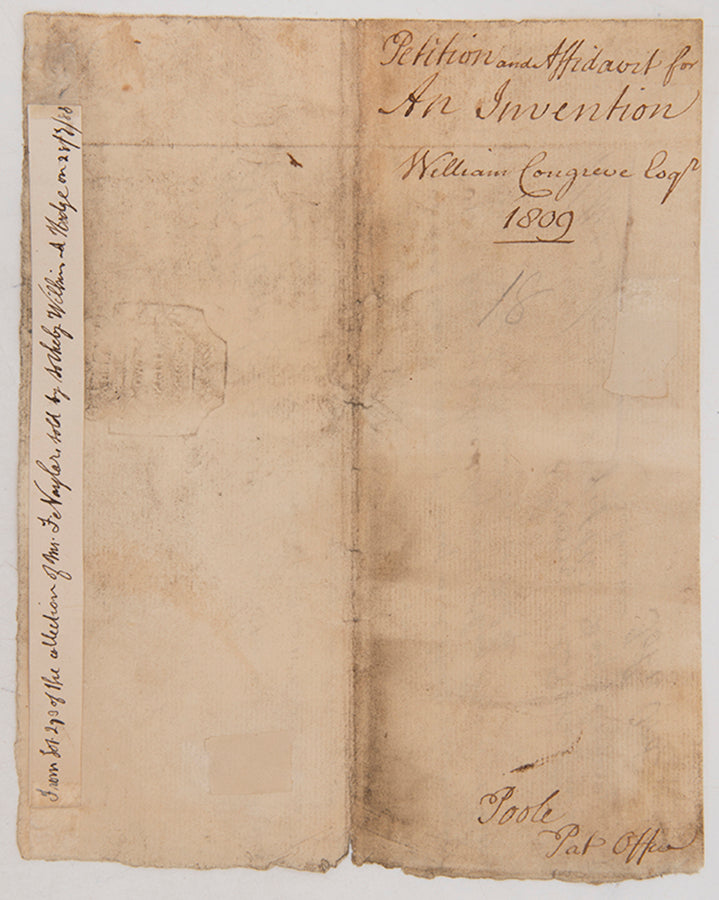 Petition and Affidavit for
An Invention
William Congreve Esqr
1809
18
Poole
Pat Office
From Lot 293 of the collection of Mr. F. Naylor, sold by Sotheby Wilkin & Hodge on